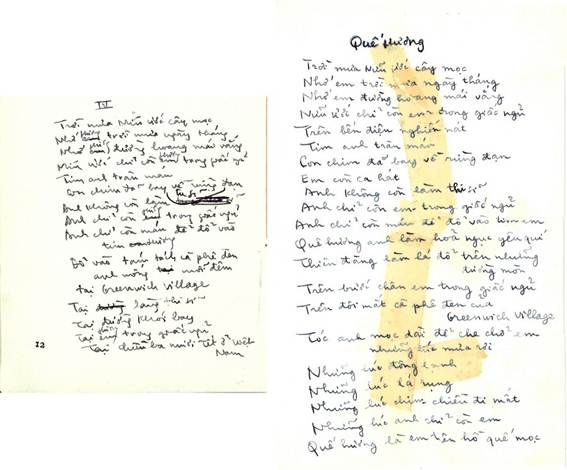 IV
Trời mưa Nữu Ước cây mọc
Nhớ trời mưa ngày tháng
Nhớ đường hoang mái vàng
Nữu Ước chỉ còn trong giấc ngủ
Tim anh tràn máu
Con chim đã bay về rừng đạn
Anh không còn làm thi sĩ
Anh chỉ còn trong giấc ngủ
Anh chỉ còn máu để đổ vào
tim
Đổ vào tám tách cà phê đen
anh uống mỗi đêm
tại Greenwich Village
Tại làng thi sĩ
Tại đường khói bay
Tại trong giấc ngủ
Tại chiều ba mươi Tết ở Việt
Nam
12
Quê hương
Trời mưa Nữu Ước cây mọc
Nhớ em trời mưa ngày tháng
Nhớ em đường hoang mái vàng
Nữu Ước chỉ còn em trong giấc ngủ
Trên bến điện nghiền nát
Tim anh tràn máu
Con chim đã bay về rừng đạn
Em còn ca hát
Anh không còn làm thi sĩ
Anh chỉ còn em trong giấc ngủ
Anh chỉ còn máu để đổ vào tim em
Quê hương anh làm hoả ngục yêu quí
Thiên đàng làm lá đổ trên những
đường mòn
Trên bước chân em trong giấc ngủ
Trên đôi mắt cà phê đen của
Greenwich Village
Tóc anh mọc dài để che chở em
những lúc mưa rơi
Những lúc đông lạnh
Những lúc lá rụng
Những lúc chim chiều đi mất
Những lúc anh chỉ còn em
Quê hương là em trên hố quê mọc